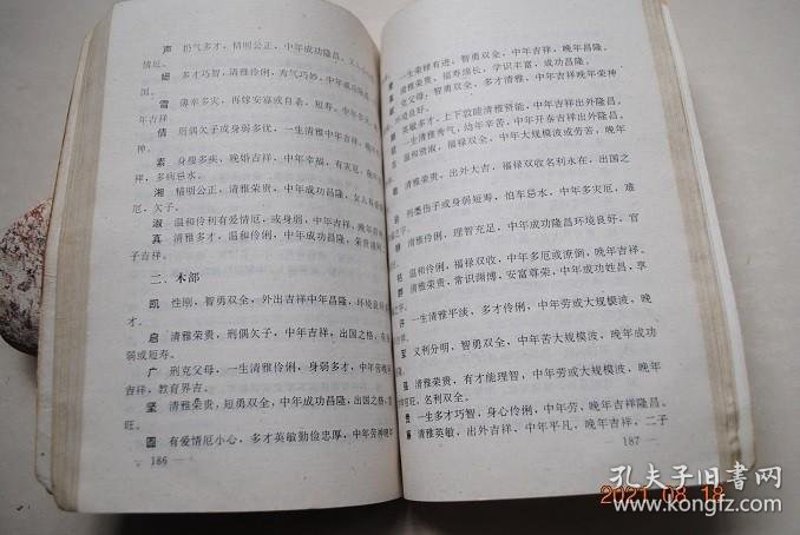 声 多才，精明公正，中年成功隆昌，
情厄。
多才巧智，清雅伶俐，秀气巧妙，中年成功
雪 薄幸多灾，再嫁安嘉或自素，短寿。
年吉祥
倩 刑偶欠子或身弱多忧，一生清雅中年吉祥，
神。
素 身瘦多疾，晚婚吉祥，中年幸福，有灾厄，
祥，多病忌水。
湘 精明公正，清雅荣贵，中年成功昌隆，女人
厄，欠子。
淑 温和伶利有爱情厄，或身弱，中年吉祥，晚年
真 清雅多才，温和伶俐，中年成功昌隆，荣贵
子吉祥。
二、木部
凯 性刚，智勇双全，外出吉祥中年昌隆，环境良好
启 清雅荣贵，刑偶欠子，中年吉祥，出国之格，
弱或短寿。
广 刑克父母，一生清雅伶俐，身弱多才，中年劳
吉祥，教育界吉。
坚 清雅荣贵，短勇双全，中年成功昌隆，出国之格，
旺。
圆 有爱情厄小心，多才英敏勤俭忠厚，中年劳神晚年
186
一生荣禄有进，智勇双全，中年吉祥，晚年昌隆。
清雅荣贵，福寿绵长，学识丰富，成功昌隆。
克父母，智勇双全，多才清雅，中年吉祥晚年荣神
环境良好。
英敏多才，上下敦睦清雅贤能，中年吉祥出外隆昌。
一生清雅秀气，幼年辛苦，中年开泰吉祥出外昌隆。
温和贤淑，福禄双全，中年大规模波或劳苦，晚年
清雅荣贵，出外大吉，福禄双收名利永在，出国之
刑妻伤子或身弱短寿，怕车忌水，中年多灾厄，难
清雅伶俐，理智充足，中年成功隆昌环境良好，官
温和伶俐，福禄双收，中年多厄或潦倒，晚年吉祥。
清雅荣贵，常识渊博，安富尊荣，中年成功姓昌，享
一生清雅平淡，多才伶俐，中年劳或大规模波，晚
义利分明，智勇双全，中年苦大规模波，晚年成功
清雅荣贵，有才能理智，中年劳或大规模波，晚年
旺，名利双全。
贵 一生多才巧智，身心伶俐，中年劳、晚年吉祥隆昌。
清雅英敏，出外吉祥，中年平凡，晚年吉祥，二子
187
2021.08.18
孔夫子旧书网
www.kongfz.com